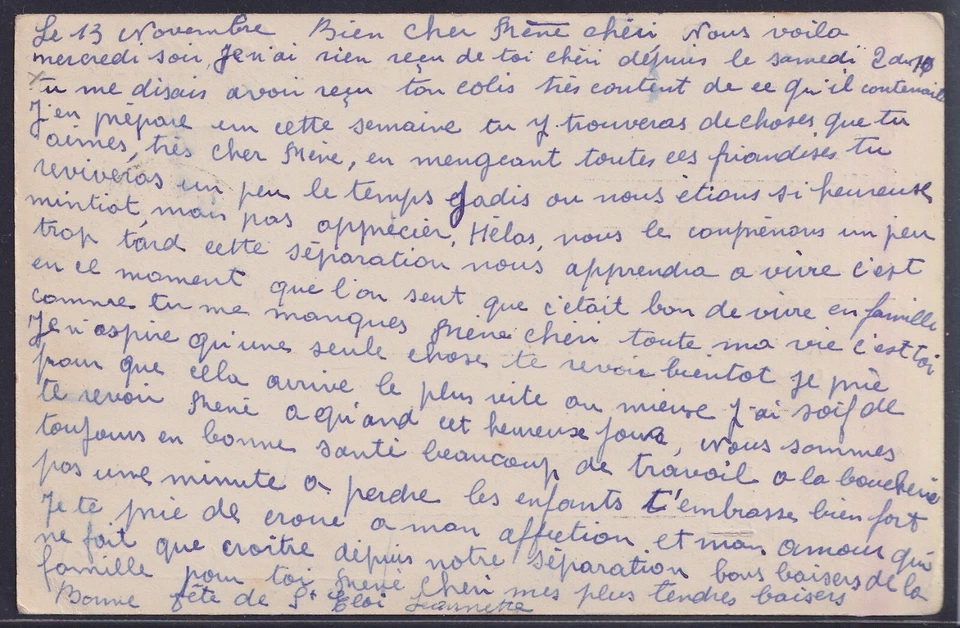 Le 13 Novembre Bien cher Mémé chéri Nous voila
mercredi soir, Je n'ai rien reçu de toi chéri dépuis le samedi 2 du
tu me disais avoir reçu ton colis très content de ce qu'il contenait
J'en prépare un cette semaine tu y trouveras de choses que tu
aimes, très cher Mémé, en mengeant toutes ces friandises tu
reviveras un peu le temps Jadis ou nous étions si heureuse
mintiot, mais pas apprécier, Hélas, nous le comprénons un peu
trop tard cette séparation nous apprendra a vivre c'est
en ce moment que l'on sent que c'etait bon de vivre en famille
comme tu me manques Mémé chéri toute ma vie c'est toi
Je n'aspire qu'une seule chose te revoir bientot Je prie
pour que cella arrive le plus vite au mieuse J'ai soif de
te revoir Mémé a quand cet heureuse jours, Nous sommes
toujours en bonne santé beaucoup de travail a la boucherie
pas une minute a perdre les enfants t'embrasse bien fort
Je te prie de croire a mon affection et mon amour qui
ne fait que croître dépuis notre séparation bons baisers de la
famille pour toi Mémé Cheri mes plus tendres baisers
Bonne fête de St Eloi Jeannette